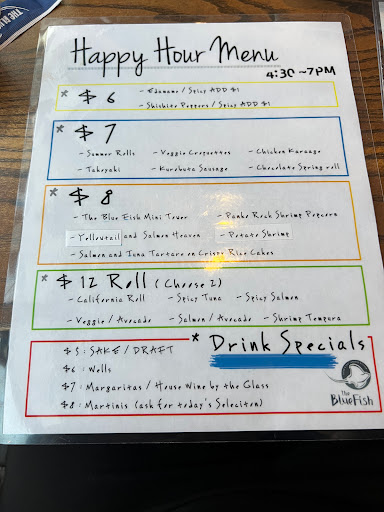 Happy Hour Menu
4:30 ~ 7PM
* $ 6
- Edamame / Spicy ADD $1
- Shishito Peppers / Spicy ADD $1
* $ 7
- Summer Rolls - Veggie Croquettes - Chicken Karaage
- Takoyaki - Kurobuta Sausage - Chocolate Spring roll
* $ 8
- The Blue Fish Mini Tower - Panko Rock Shrimp Popcorn
- Yellowtail and Salmon Heaven - Potato Shrimp
- Salmon and Tuna Tartare on Crispy Rice Cakes
* $ 12 Roll (Choose 2)
- California Roll - Spicy Tuna - Spicy Salmon
- Veggie / Avocado - Salmon / Avocado - Shrimp Tempura
* Drink Specials
$5 : SAKE / DRAFT
$6 : Wells
$7 : Margaritas / House Wine by the Glass
$8 : Martinis (ask for today's Selection)
The
Blue Fish